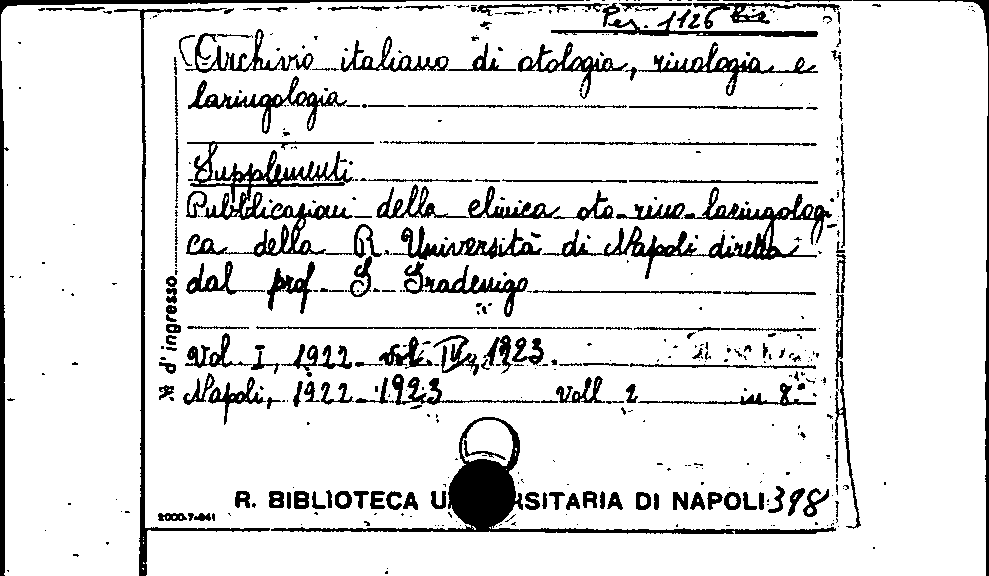 Per. 1126 bis
Archivio italiano di otologia, rinologia e
laringologia.
Supplementi
Pubblicazioni della clinica oto-rino-laringologi
ca della R. Università di Napoli diretta
dal prof. G. Gradenigo
Vol. I, 1922 - vol. IV, 1923.
Napoli, 1922-1923 voll 2 in 8°
N d'ingresso
R. BIBLIOTECA U RSITARIA DI NAPOLI 398
2000-7-941